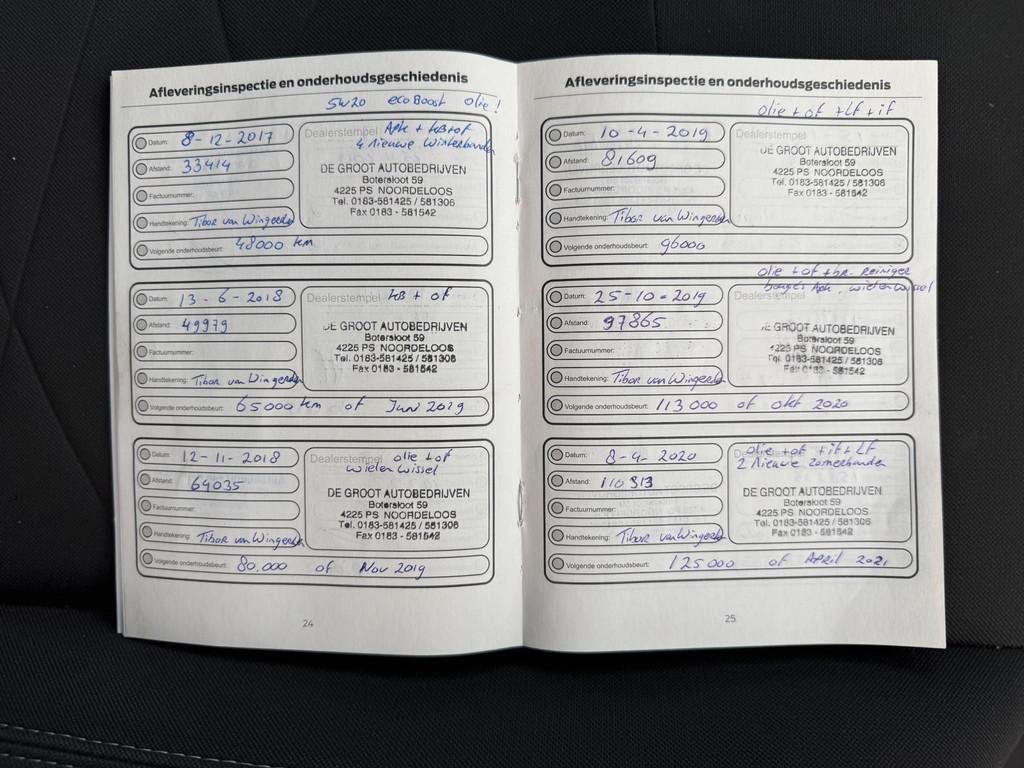 Afleveringsinspectie en onderhoudsgeschiedenis
5W20 ecoBoost olie!
Datum: 8-12-2017
Dealerstempel Apk + kB+of
4 Nieuwe Winterbanden
Afstand: 33414
Factuurnummer:
Handtekening: Tibor van Wingerden
DE GROOT AUTOBEDRIJVEN
Botersloot 59
4225 PS NOORDELOOS
Tel. 0183-581425 / 581306
Fax 0183 - 581542
Volgende onderhoudsbeurt: 48000 km
Datum: 13-6-2018
Dealerstempel kB + of
Afstand: 49979
Factuurnummer:
Handtekening: Tibor van Wingerden
DE GROOT AUTOBEDRIJVEN
Botersloot 59
4225 PS NOORDELOOS
Tel. 0183-581425 / 581306
Fax 0183 - 581542
Volgende onderhoudsbeurt: 65000 km of Juni 2019
Datum: 12-11-2018
Dealerstempel olie + of
wielen wissel
Afstand: 64035
Factuurnummer:
Handtekening: Tibor van Wingerden
DE GROOT AUTOBEDRIJVEN
Botersloot 59
4225 PS NOORDELOOS
Tel. 0183-581425 / 581306
Fax 0183 - 581542
Volgende onderhoudsbeurt: 80.000 of Nov 2019
24
Afleveringsinspectie en onderhoudsgeschiedenis
olie + of + Lf + if
Datum: 10-4-2019
Dealerstempel
Afstand: 81609
Factuurnummer:
Handtekening: Tibor van Wingerden
DE GROOT AUTOBEDRIJVEN
Botersloot 59
4225 PS NOORDELOOS
Tel. 0183-581425 / 581306
Fax 0183 - 581542
Volgende onderhoudsbeurt: 96000
olie + of + br- Reiniger
bougies Apk, wielen wissel
Datum: 25-10-2019
Dealerstempel
Afstand: 97865
Factuurnummer:
Handtekening: Tibor van Wingerden
DE GROOT AUTOBEDRIJVEN
Botersloot 59
4225 PS NOORDELOOS
Tel. 0183-581425 / 581306
Fax 0183 - 581542
Volgende onderhoudsbeurt: 113000 of okt 2020
Datum: 8-4-2020
Dealerstempel olie + of + if + Lf
2 Nieuwe zomerbanden
Afstand: 110313
Factuurnummer:
Handtekening: Tibor van Wingerden
DE GROOT AUTOBEDRIJVEN
Botersloot 59
4225 PS NOORDELOOS
Tel. 0183-581425 / 581306
Fax 0183 - 581542
Volgende onderhoudsbeurt: 125000 of April 2021
25